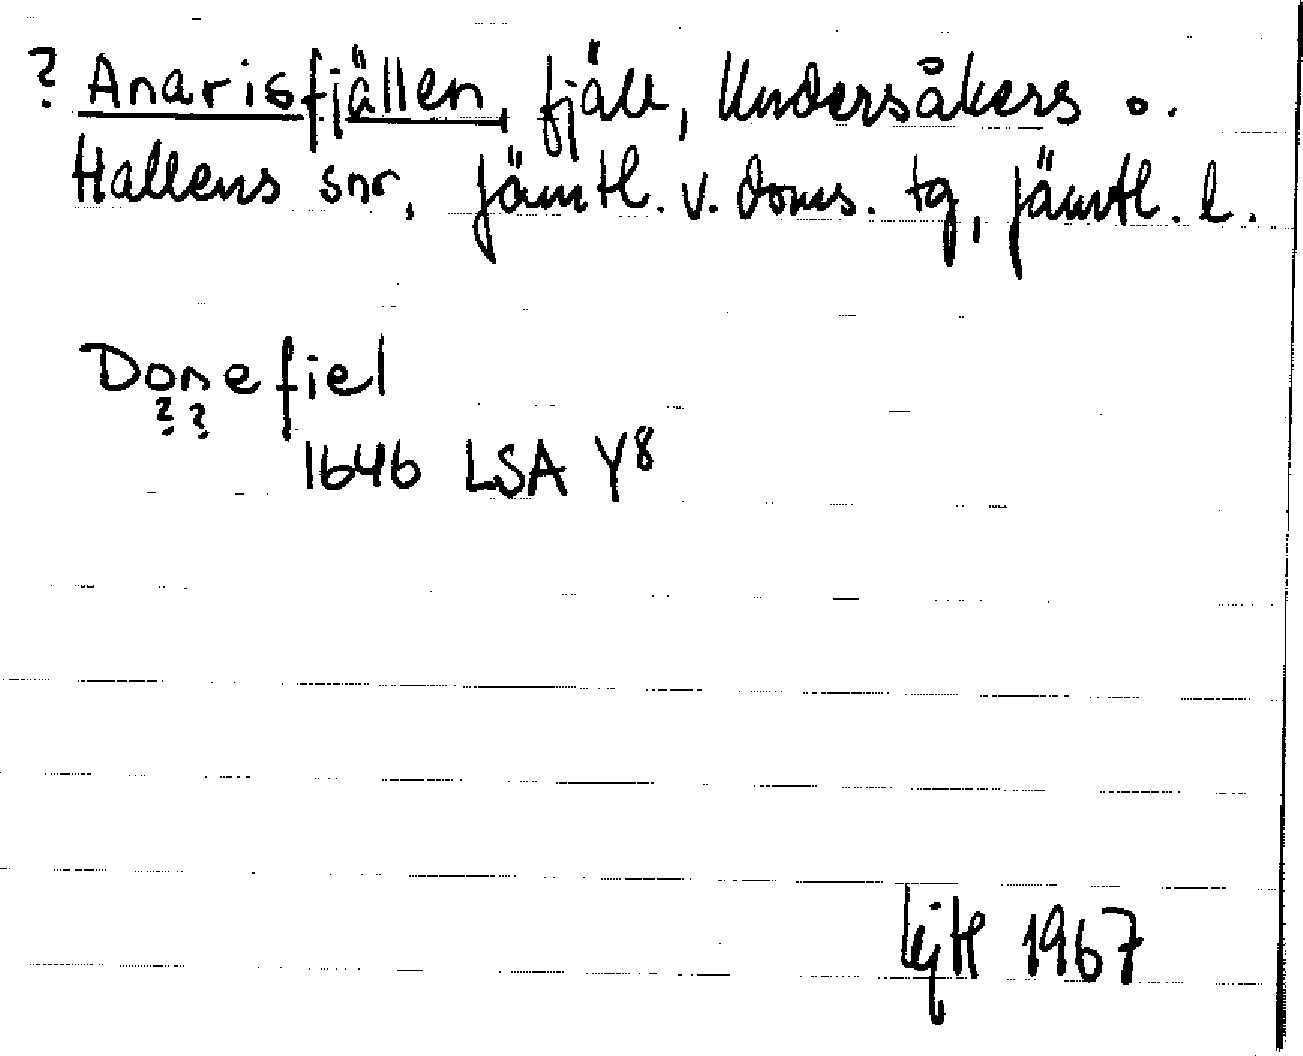 ? Anarisfjällen, fjäll, Undersåkers o.
Hallens snr, Jämtl. v. doms. tg, Jämtl. l.
Donefiel
? ?
1646 LSA Y8
1967